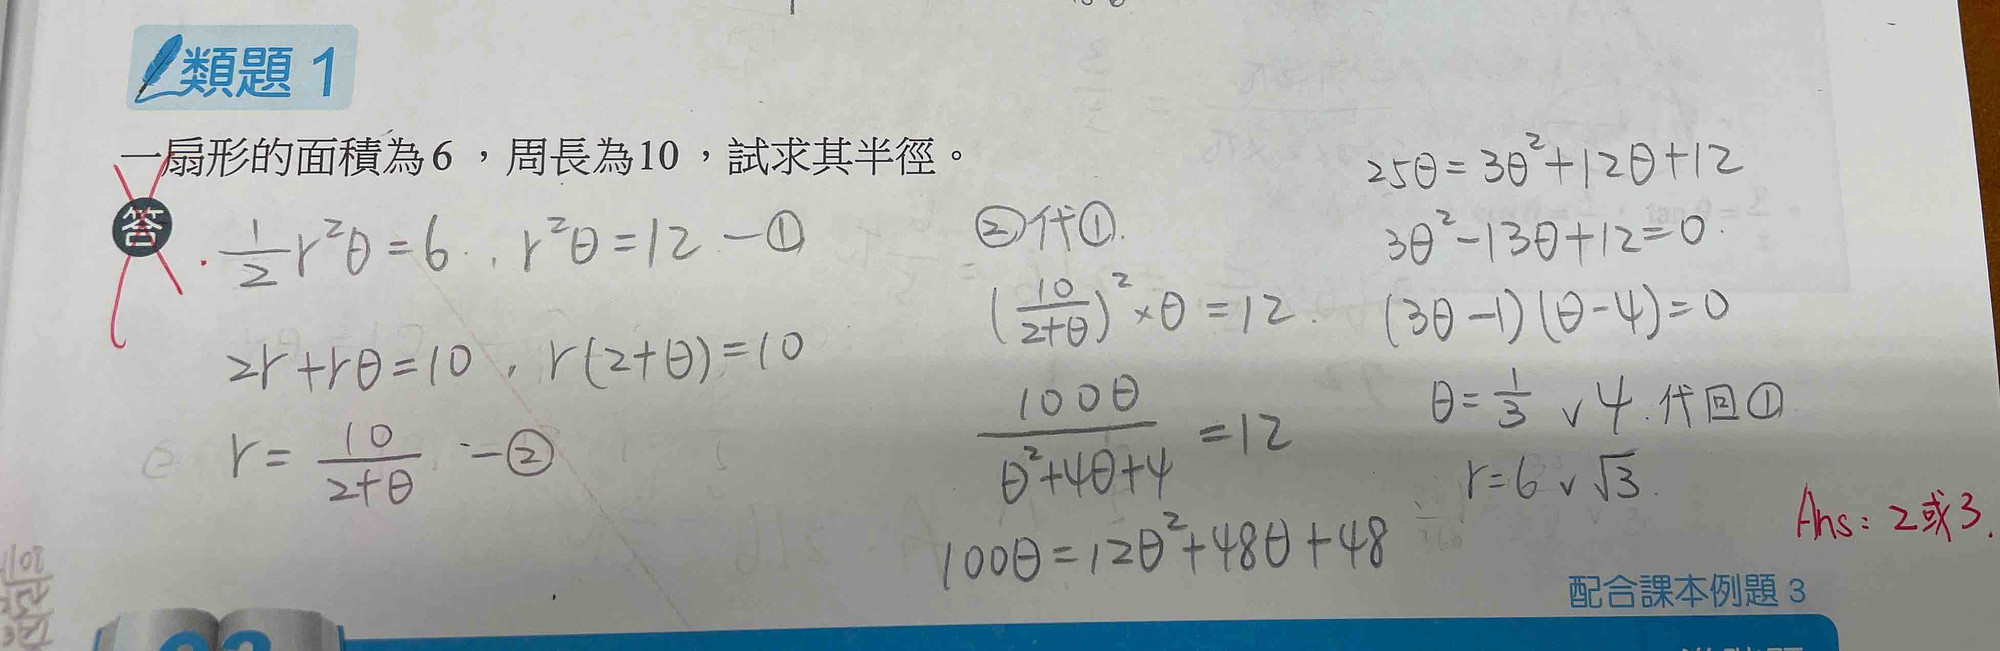 類題 1
一扇形的面積為6，周長為10，試求其半徑。
答
1/2 r²θ=6, r²θ=12 -①
2r+rθ=10, r(2+θ)=10
r=10/(2+θ) -②
②代①.
(10/(2+θ))²×θ=12.
100θ/(θ²+4θ+4)=12
100θ=12θ²+48θ+48
25θ=3θ²+12θ+12
3θ²-13θ+12=0.
(3θ-1)(θ-4)=0
θ=1/3 ∨ 4.代回①
r=6 ∨ √3.
Ans: 2或3.
配合課本例題 3